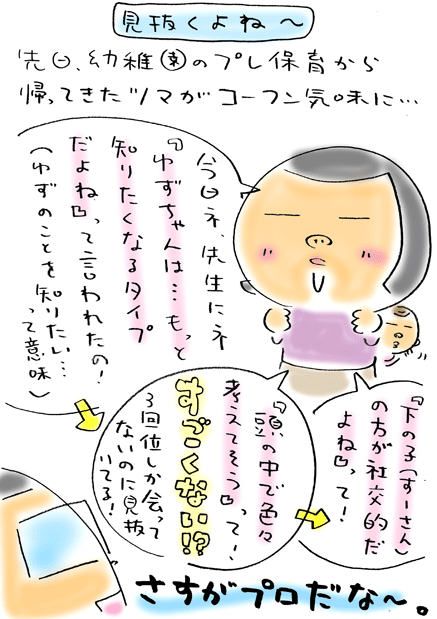 見抜くよね～
先日、幼稚園のプレ保育から
帰ってきたツマがコーフン気味に…
今日ネ、先生にネ
『ゆずちゃんは…もっと
知りたくなるタイプ
だよね』って言われたの!
(ゆずのことを知りたい…
って意味)
『下の子(すーさん)
の方が社交的だ
よね』って!
『頭の中で色々
考えてそう』って!
すごくない!?
3回位しか会って
ないのに見抜
いてる!
さすがプロだな～。